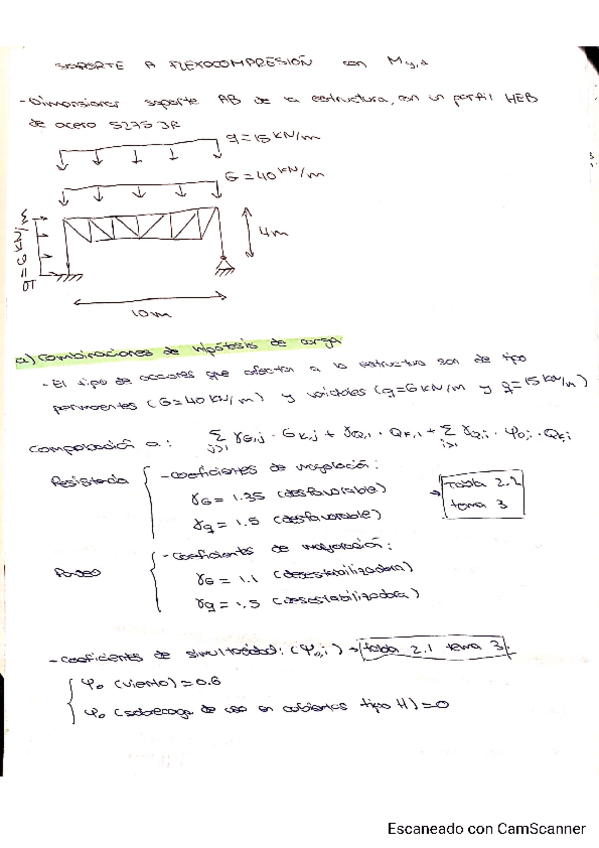 SOPORTE A FLEXOCOMPRESIÓN con My,d
- Dimensionar soporte AB de la estructura, con un perfil HEB
de acero S275 JR
q = 15 kN/m
G = 40 kN/m
4m
= 6 kN/m
10m
a) Combinaciones de hipótesis de carga
- El tipo de acciones que afectan a la estructura son de tipo
permanentes (G = 40 kN/m) y variables (q = 6 kN/m y q = 15 kN/m)
Comprobación a: Σ j≥1 γG,j · Gk,j + γQ,1 · Qk,1 + Σ i>1 γQ,i · φ0,i · Qk,i
Resistencia
- coeficientes de mayoración:
γG = 1.35 (desfavorable)
γq = 1.5 (desfavorable)
→ tabla 2.2
tema 3
Pandeo
- Coeficientes de mayoración:
γG = 1.1 (desestabilizadora)
γq = 1.5 (desestabilizadora)
- Coeficientes de simultaneidad: (φ0,i) → tabla 2.1 tema 3
φ0 (viento) = 0.6
φ0 (sobrecarga de uso en cubiertas tipo H) = 0
Escaneado con CamScanner